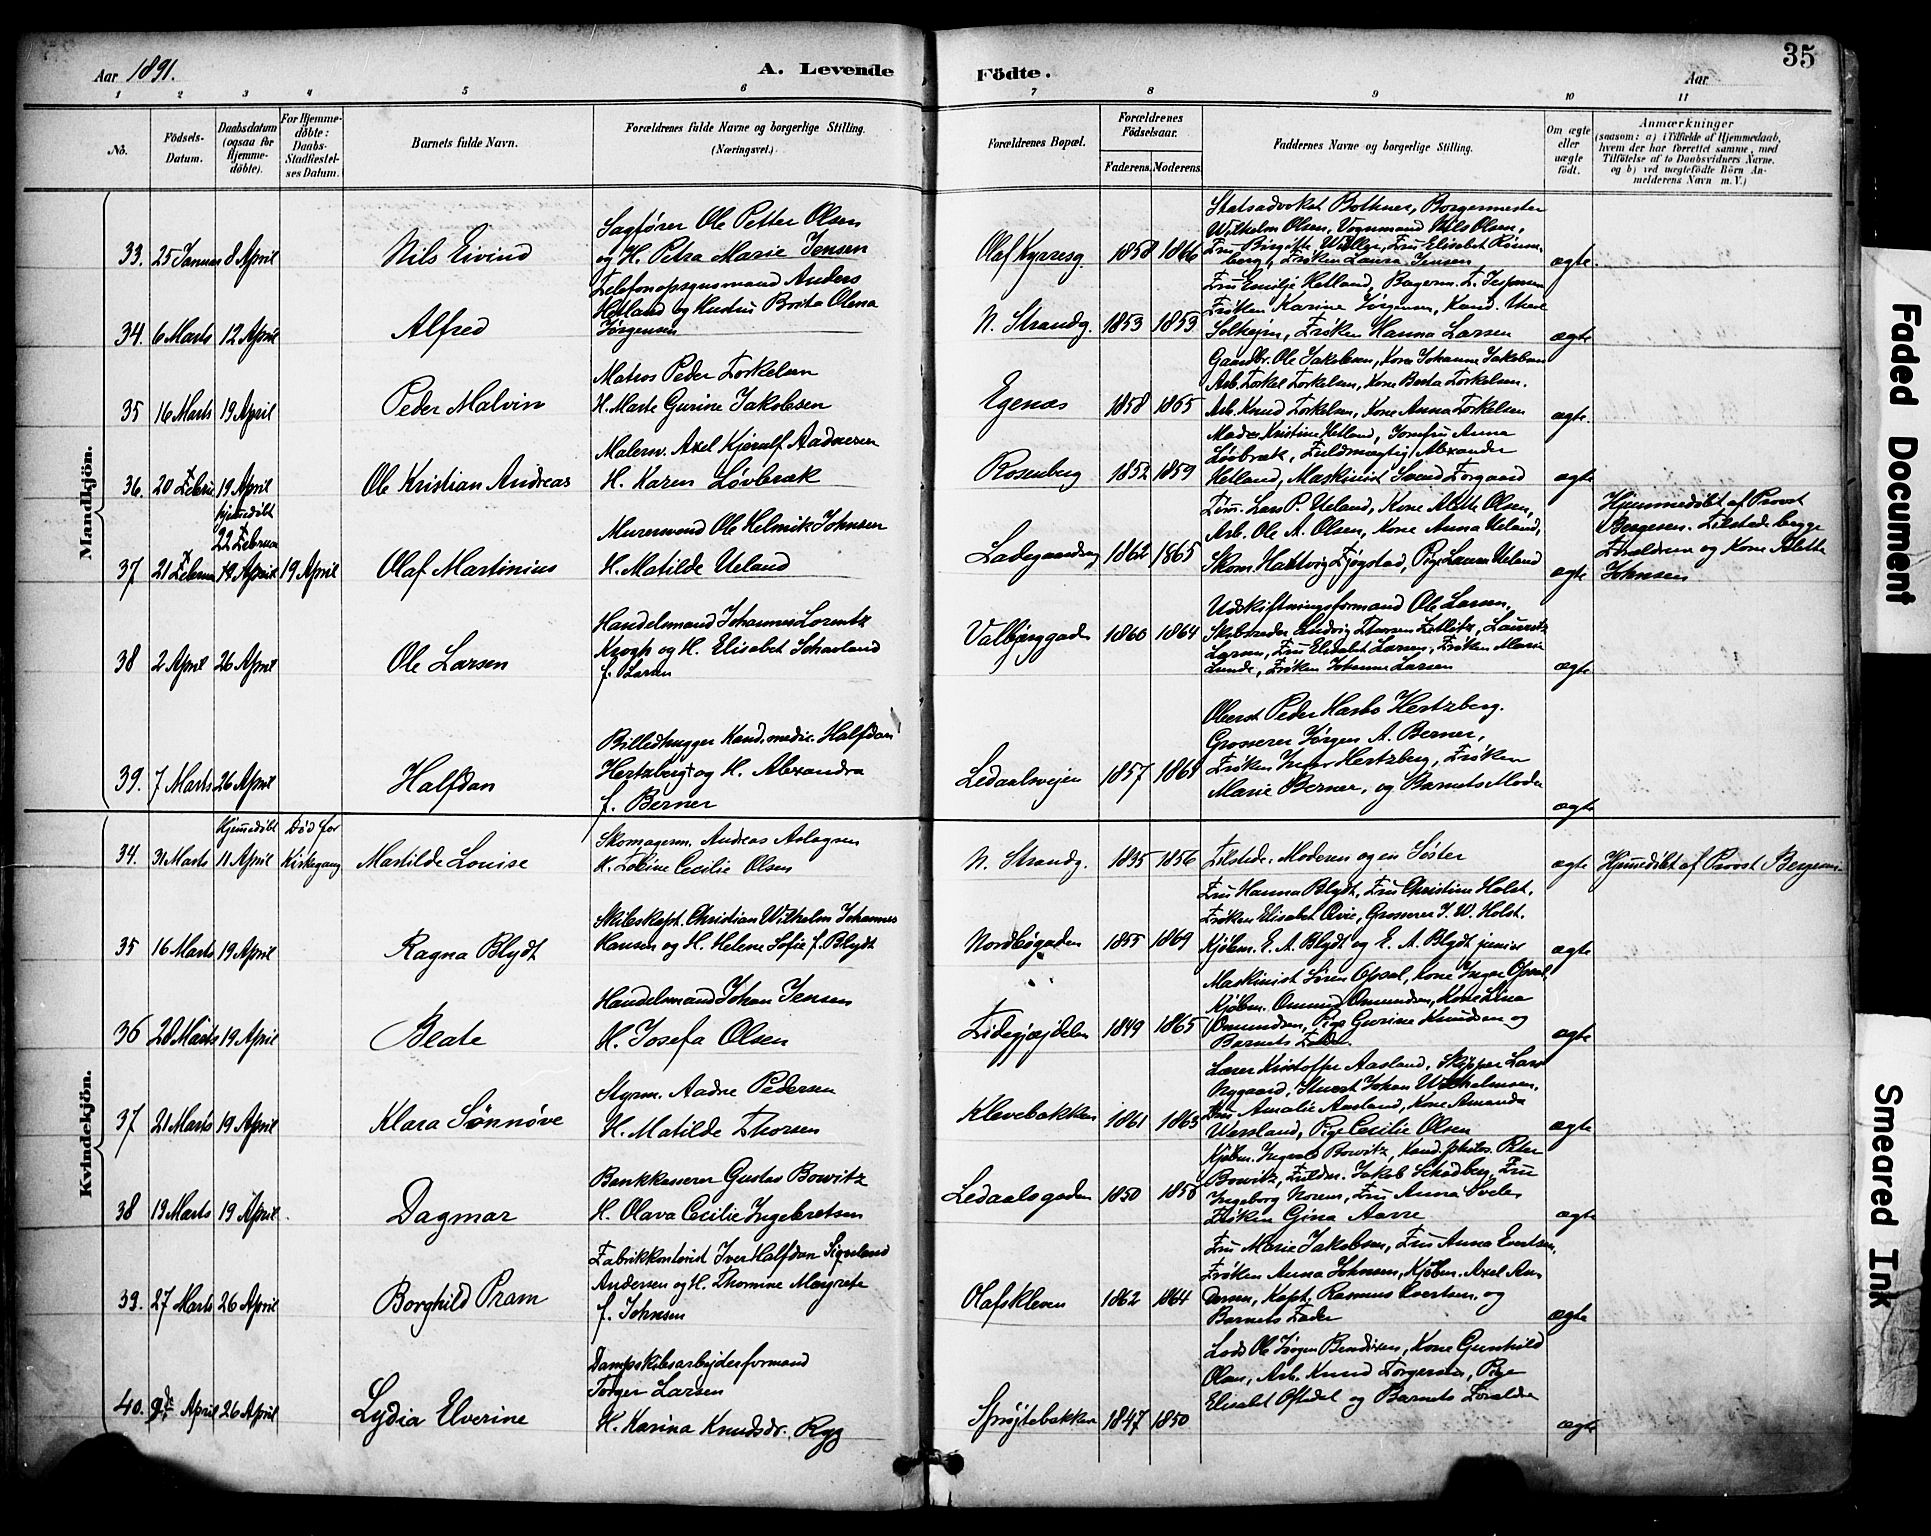 Aar 1891.
A. Levende Födte.
Aar
35
1 2 3 4 5 6 7 8 9 10 11
No.
Födsels-Datum.
Daabsdatum (ogsaa for Hjemme-döbte).
For Hjemme-döbte: Daabs-Stadfæstel-ses Datum.
Barnets fulde Navn.
Forældrenes fulde Navne og borgerlige Stilling.
(Næringsvei.)
Forældrenes Bopæl.
Forældrenes Födselsaar.
Faderens. Moderens.
Faddernes Navne og borgerlige Stilling.
Om ægte eller uægte födt.
Anmærkninger
(saasom: a) i Tilfælde af Hjemmedaab,
hvem der har forrettet samme, med
Tilföielse af to Daabsvidners Navne.
og b) ved uægtefödte Börn An-
melderens Navn m.V.)
Mandkjön.
33. 25 Januar 8 April
Nils Eivind
Sagfører Ole Petter Olsen
og H. Petra Marie Jensen
Olaf Kyrresg. 1858 1866
Statsadvokat Bothner, Borgermester
Wilhelm Olsen, Vognmand Nils Olsen,
Fru Birgitte Fru Elisabet
Frøken Laura Jensen
ægte
34. 6 Marts 12 April
Alfred
Telefonopsynsmand Anders
Hetland og Hustru Brita Olena
Jørgensen
N. Strandg. 1853 1853
Fru Emilie Hetland, Bagerm. T. Jespersen
Frøken Karine Jørgensen, Kand.
Frøken Hanna Larsen
ægte
35 16 Marts 19 April
Peder Malvin
Matros Peder Torkelsen
H. Marte Gurine Jakobsen
Egenæs 1858 1865
Gaardbr. Ole Jakobsen, Kone Johanne Jakobsen
Arb. Torkel Torkelsen, Kone Berta Torkelsen.
Arb. Knud Torkelsen, Kone Anna Torkelsen
ægte.
36. 20 Febru 19 April
Ole Kristian Andreas
Malerm. Axel Kjerulf Aadnesen
H. Karen Løvbræk
Rosenberg 1852 1859
Kristine Hetland, Jomfru Anna
Løvbræk, Fuldmægtig Alexander
Hetland, Maskinist Svend Torgaard
ægte
hjemmedöbt
22 Februar
37 21 Februar 19 April 19 April
Olaf Martinius
Murermand Ole Helmik Johnsen
H. Matilde Ueland
Ladegaardsveg 1862 1865
Tøm. Lars P. Ueland, Kone Alette Olsen,
Arb. Ole A. Olsen, Kone Anna Ueland,
Skom. Hartvig Fjøgstad, Pige Laura Ueland
ægte
Hjemmedöbt af Provst
Bergesen. Tilstede begge
Forældrene og Kone Alette
Johnsen
38 2 April 26 April
Ole Larsen
Handelsmand Johannes Lorentz
Krogh og H. Elisabet Schavland
f. Larsen
Valbjerggaden 1860 1864
Udskiftningsformand Ole Larsen,
Skibsreder Ludvig Thorsen Lauritz
Larsen, Fru Elisabet Larsen, Frøken Marie
Lunde, Frøken Johanne Larsen
ægte
39. 7 Marts 26 April
Halfdan
Billedhugger Kand. medic. Halfdan
Hertzberg og H. Alexandra
f. Berner
Ledaalsvejen 1857 1868
Oberst Peder Harbo Hertzberg.
Grosserer Jørgen A. Berner,
Frøken Inger Hertzberg, Frøken
Marie Berner, og Barnets Moder
ægte
Kvindekjön.
Hjemmedöbt Död før
34. 31 Marts 11 April Kirkegang
Mathilde Louise
Skomagerm. Andreas Aslagsen
H. Tobine Cecilie Olsen
N. Strandg. 1835 1856
Tilstede. Moderen og en Søster
ægte
Hjemmedöbt af Provst Bergesen.
35 16 Marts 19 April
Ragna Blydt
Skibskapt. Christian Wilhelm Johannes
Hansen og H. Helene Sofie f. Blydt
Nordbøgaden 1855 1869
Fru Hanna Blydt, Fru Christine Holst.
Frøken Elisabet Qvie, Grosserer J. W. Holst.
Kjøbm. E. A. Blydt og E. A. Blydt junior
ægte
36 28 Marts 19 April
Beate
Handelsmand Johan Jensen
H. Josefa Olsen
Fidegjæjdelen 1849 1865
Maskinist Søren Opsal, Kone Inger Opsal,
Kjøbm. Ommund Omundsen, Kone Lina
Omundsen, Pige Gurine Knudsen og
Barnets Fader.
ægte
37 21 Marts 19 April
Klara Sønnøve
Styrm. Aadne Pedersen
H. Matilde Thorsen
Klevebakken 1861 1865
Lærer Kristoffer Aasland, Skipper Lars
Nygaard, Stuert Johan Wilhelmsen,
Fru Amalie Aasland, Kone Amanda
Wersland, Pige Cecilie Olsen
ægte
38 13 Marts 19 April
Dagmar
Bankkasserer Gustav Bowitz
H. Olava Cecilie Ingebretsen
Ledaalsgaden 1850 1858
Kjøbm. Ingvald Bowitz, Kand. philos. Peter
Bowitz, Fuldm. Jakob Schadberg, Fru
Ingeborg Norem, Fru Anna Svele,
Frøken Gina Aarre
ægte
39. 27 Marts 26 April
Borghild Pram
Fabrikkontorist Iver Halfdan Sigvland
Andersen og H. Thomine Margrete
f. Johnsen
Olafskleven 1862 1864
Fru Marie Jakobsen, Fru Anna Evertsen,
Frøken Anna Johnsen, Kjøbm. Axel An-
dersen, Kapt. Rasmus Evertsen, og
Barnets Fader
ægte
40. 9de April 26 April
Lydia Elverine
Dampskibsarbejderformand
Torger Larsen
H. Karina Knudsdr. Ryg
Sprøjtebakken 1847 1850
Lods Ole Jørgen Bendixen, Kone Gunhild
Olsen, Arb. Knud Torgersen, Pige
Elisabet Oftedal og Barnets Forældre
ægte
Faded Document
Smeared Ink